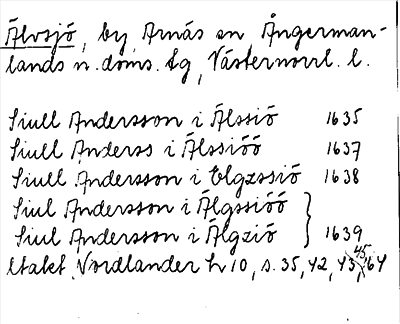 Älvsjö, by, Arnäs sn Ångerman-
lands n. doms. tg, Västernorrl. l.
Siull Andersson i Älssiö 1635
Siull Anderss i Älssiöö 1637
Siull Andersson i Elgzssiö 1638
Siul Andersson i Älgssiöö
Siul Andersson i Älgziö 1639
Utakt. Nordlander h 10, s. 35, 42, 43, 45, 64